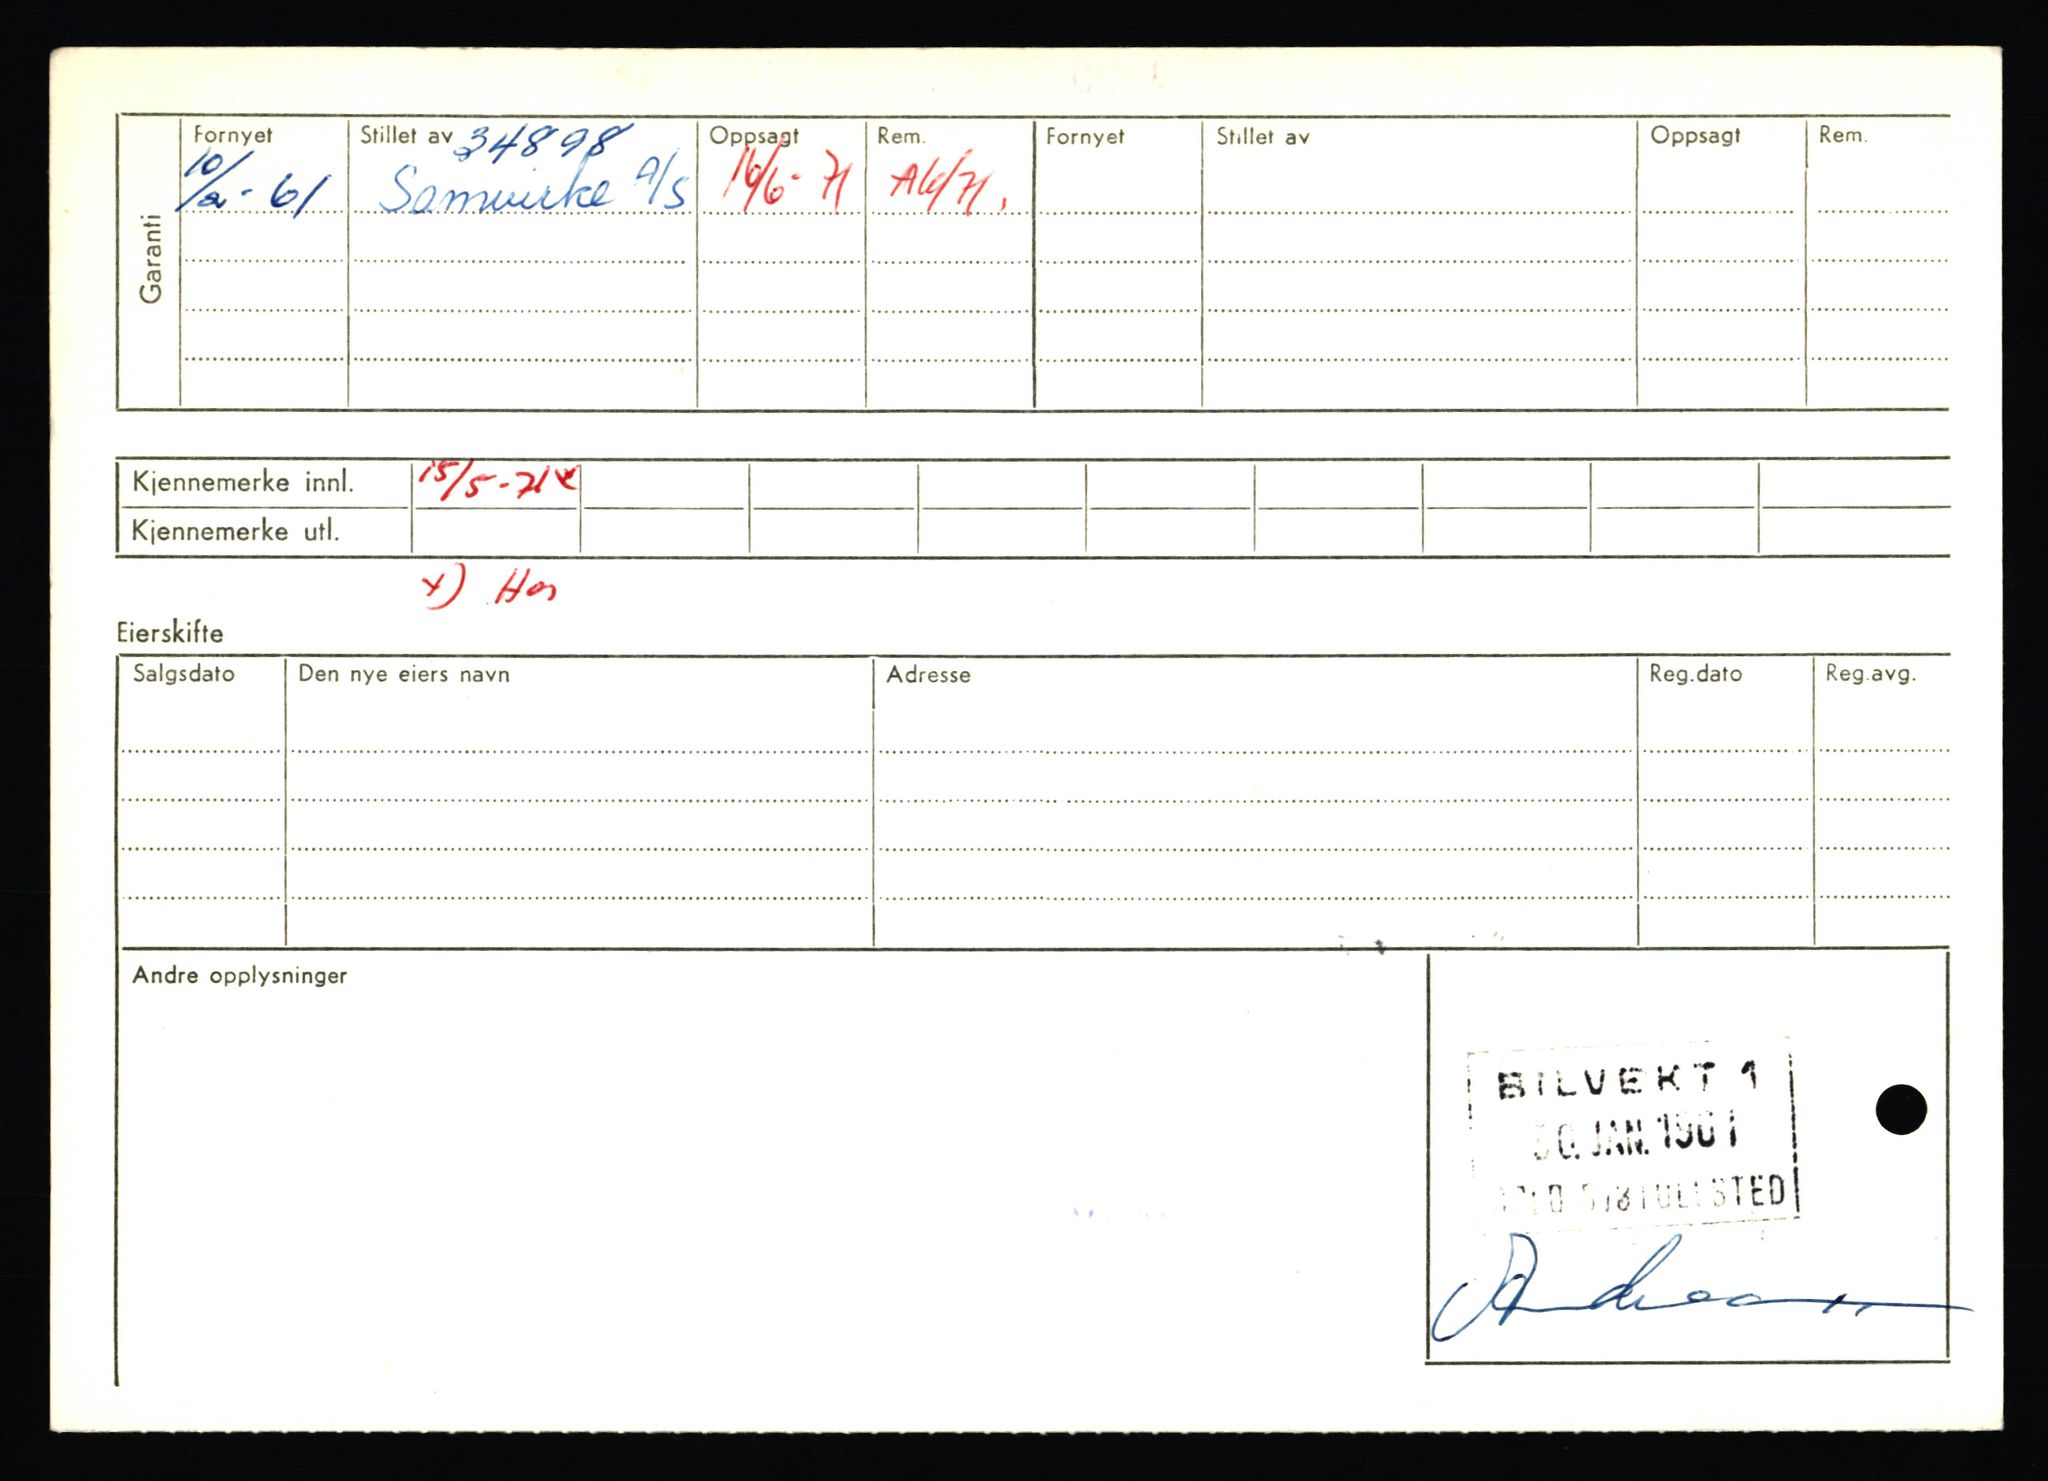 Garanti
Fornyet Stillet av Oppsagt Rem. Fornyet Stillet av Oppsagt Rem.
34898
10/2-61 Samvirke A/S 16/6-71
Kjennemerke innl. 15/5-71 x
Kjennemerke utl.
x)
Eierskifte
Salgsdato Den nye eiers navn Adresse Reg.dato Reg.avg.
Andre opplysninger
BILVEKT 1
30. JAN. 1961